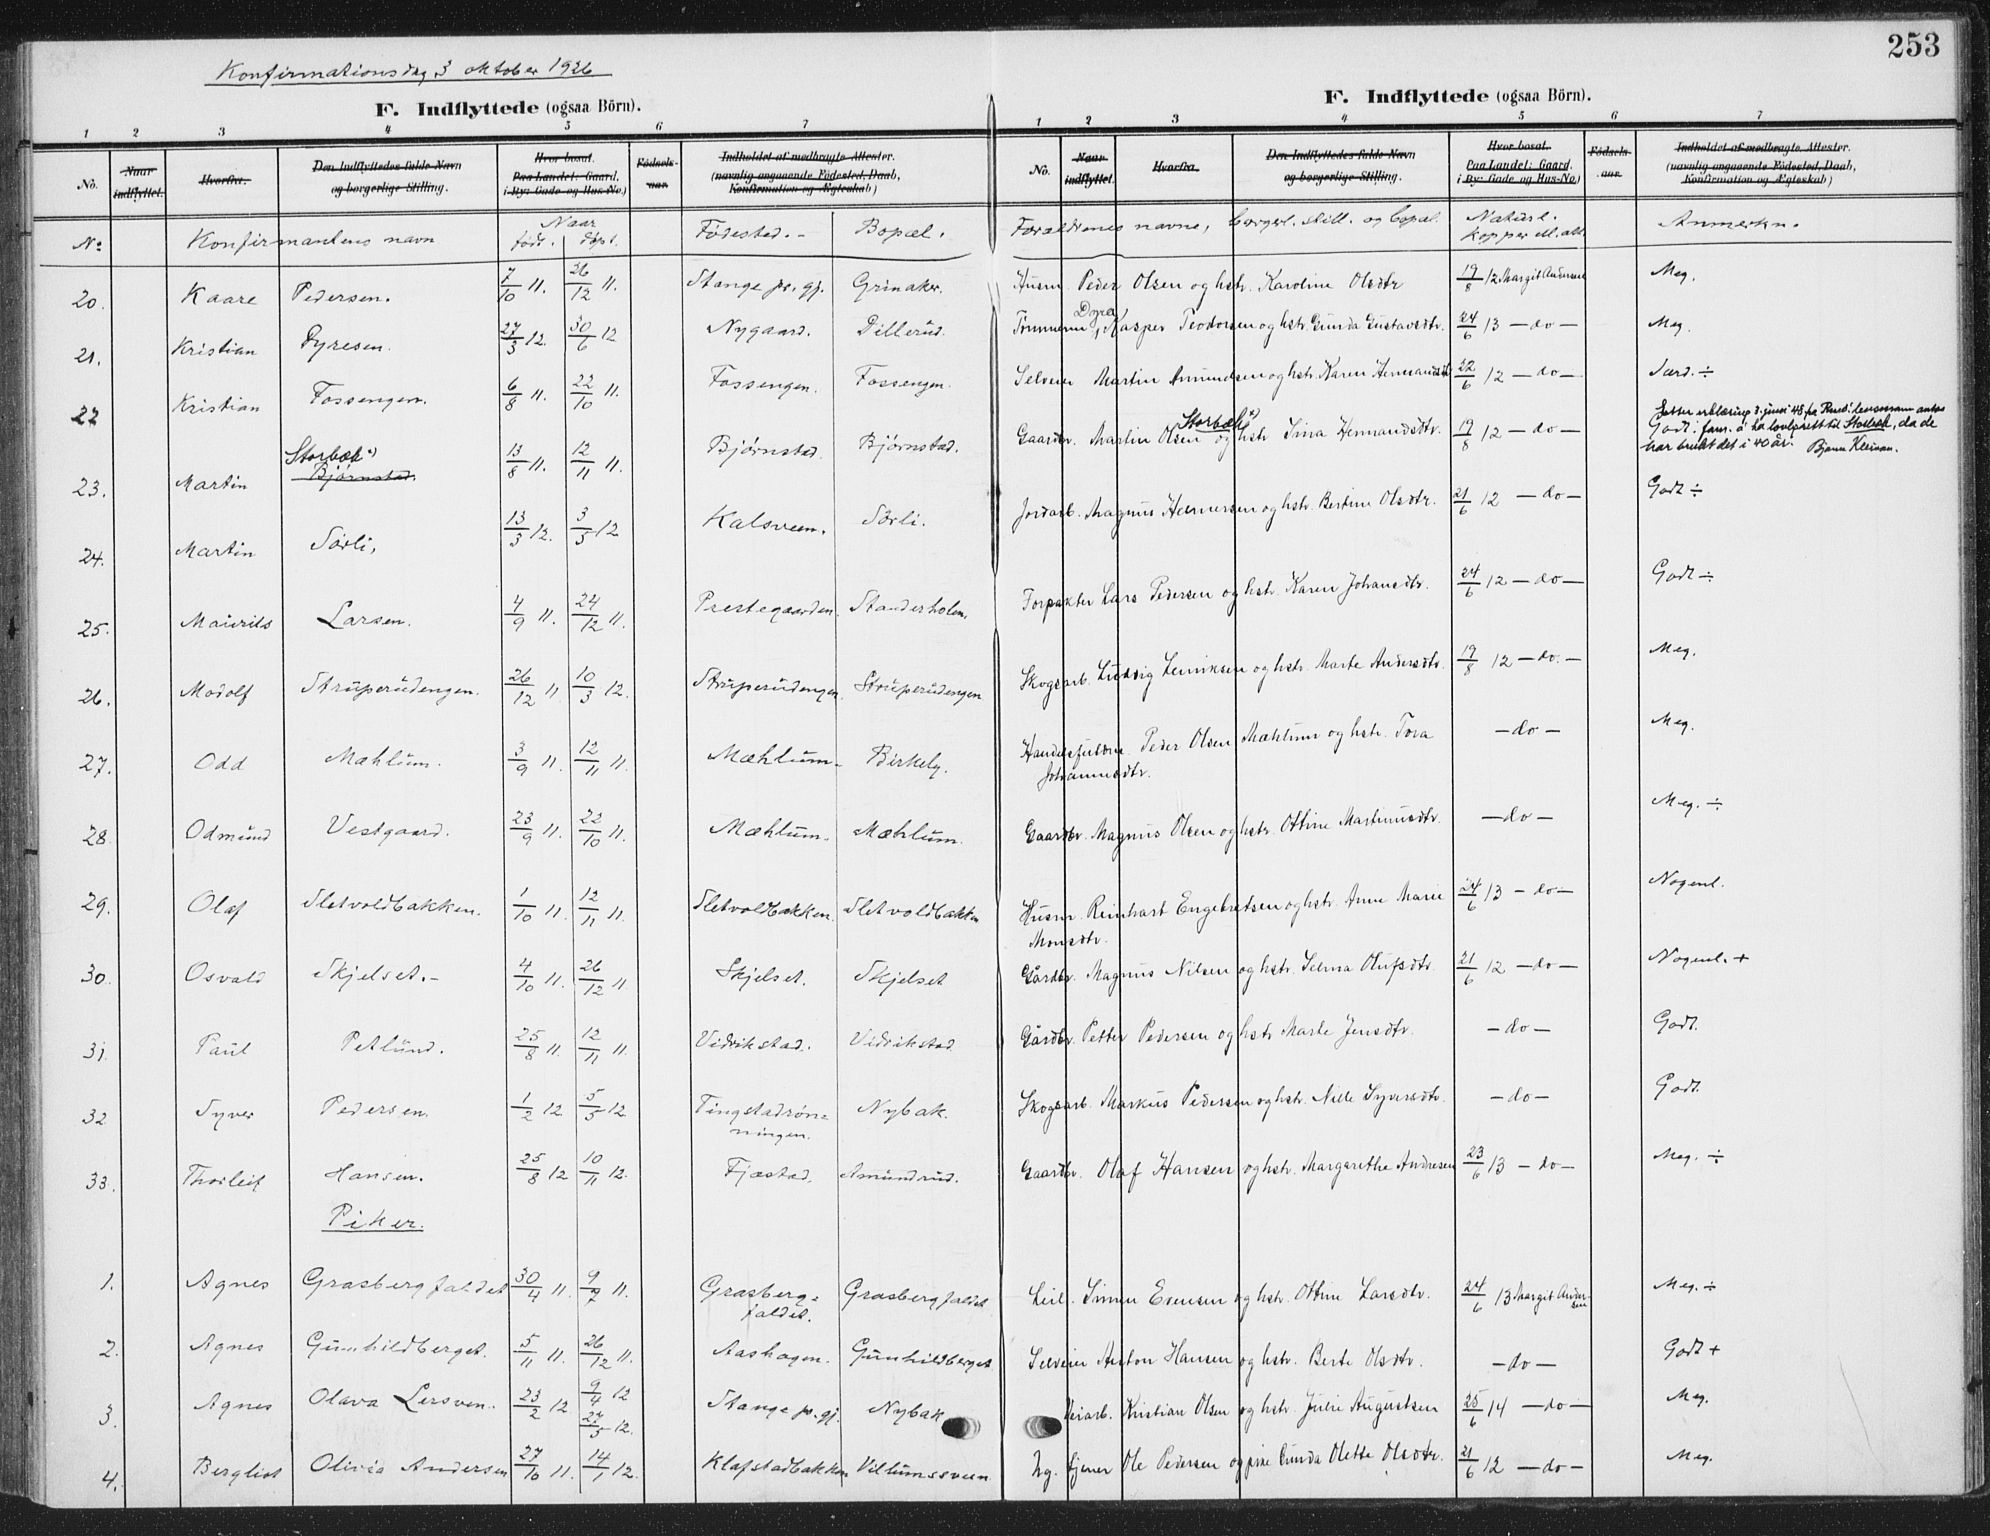 253
Konfirmationsdag 3 oktober 1926
F. Indflyttede (ogsaa Börn).
F. Indflyttede (ogsaa Börn).
1 2 3 4 5 6 7
1 2 3 4 5 6 7
No. Naar indflyttet. Hvorfra. Den Indflyttedes fulde Navn og borgerlige Stilling. Hvor bosat. Paa Landet: Gaard. i By: Gade og Hus-No.) Fødsels-aar. Indholdet af medbragte Attester. (navnlig angaaende Födested, Daab, Konfirmation og Ægteskab)
No. Naar indflyttet. Hvorfra. Den Indflyttedes fulde Navn og borgerlige Stilling. Hvor bosat. Paa Landet: Gaard. i By: Gade og Hus-No) Fødsels-aar. Indholdet af medbragte Attester. (navnlig angaaende Födested, Daab, Konfirmation og Ægteskab)
No Konfirmantens navn Naar født. døpt. Fødested.- Bopæl. Forældrenes navne, borgerl. still. og bopæl. Naturl. kopper el. att. Anmerkn.
20. Kaare Pedersen. 7/10 11. 26/12 11. Stange pr. gj. Grinaker. Husm. Peder Olsen og hstr. Karoline Olsdtr 19/8 12 Margit Andersen Meg.
21. Kristian Dyresen. 27/3 12. 30/6 12 Nygaard. Dillerud. Tømmerm. Kasper Teodorsen og hstr. Gunda Gustavsdtr. 24/6 13 - do - Meg.
22 Kristian Fossengen. 6/8 11. 22/10 11. Fossengen. Fossengen. Selveier Martin Amundsen og hstr. Karen Hermansdtr 22/6 12 - do - Særd. ÷
23. Martin Storbæk x) Bjørnstad. 13/8 11. 12/11 11. Bjørnstad. Bjørnstad. Gaardbr. Martin Olsen Storbæk x) og hstr Sina Hermansdtr. 19/8 12 - do - Godt.
Etter erklæring 3. juni 48 fra Rued. lensmann antas fam. å ha lovlig rett til Storbæk, da de har brukt det i 40 år.
24. Martin Sørli, 13/3 12. 3/5 12 Kalsveen. Sørli. Jordarb. Magnus og hstr. Bertine Olsdtr. 21/6 12 - do - Godt ÷
25. Maurits Larsen. 4/9 11. 24/12 11. Prestegaarden. Standerholen. Forpakter Lars Pedersen og hstr. Karen Johansdtr. 24/6 12 - do - Godt ÷
26. Modolf Struperudengen. 26/12 11 10/3 12. Struperudengen Struperudengen Skogsarb. Ludvig Henriksen og hstr. Marte Andersdtr. 19/8 12 - do. - Meg.
27. Odd Mæhlum. 3/9 11. 12/11 11. Mæhlum - Birkely. Peder Olsen Mæhlum og hstr. Tora Johannesdtr. - do - Meg.
28. Odmund Vestgaard. 23/9 11. 22/10 11. Mæhlum - Mæhlum. Gaardbr. Magnus Olsen og hstr. Ottine Martinusdtr. - do - Meg. ÷
29. Olaf Sletvoldbakken. 1/10 11. 12/11 11. Sletvoldbakken. Sletvoldbakken Husm. Reinhart Engebretsen og hstr. Anne Marie Monsdtr. 24/6 13 - do - Nogenl.
30. Osvald Skjelset.- 4/10 11. 26/12 11. Skjelset. Skjelset Gårdbr. Magnus Nilsen og hstr. Selma Olufsdtr. 21/6 12 - do - Nogenl. +
31. Paul Petlund. 25/8 11. 12/11 11. Vidrikstad. Vidrikstad Gårdbr. Petter Pedersen og hstr Marte Jensdtr. - do - Godt.
32 Syver Pedersen. 1/2 12 5/5 12 Tingstadrønningen. Nybak. Skogsarb. Markus Pedersen og hstr. Nille Syversdtr. - do - Godt.
33. Thorleif Hansen. 25/8 12 10/11 12. Fjæstad. Amundrud. Gaardbr. Olaf Hansen og hstr. Margarethe Andresen 23/6 13 - do - Meg. ÷
Piker.
1. Agnes Grasbergfaldet 30/4 11. 9/7 11. Grasbergfaldet. Grasbergfaldet Leil. Simen Evensen og hstr. Ottine Larsdtr. 24/6 13 Margit Andersen Meg. ÷
2. Agnes Gunhildberget. 5/11 11. 26/12 11. Aashagen. Gunhildberget Selveier Anton Hansen og hstr. Berte Olsdtr. - do - Godt +
3. Agnes Olava Lersven. 23/2 12. 9/4 12 27/5 12. Stange pr. gj. Nybak Veiarb. Kristian Olsen og hstr. Julie Augustsen 25/6 14 - do - Meg.
4. Bergliot Olivia Andersen 27/10 11. 14/1 12. Klafstadbakken Villumssveen Ug. tjener Ole Pedersen og pike Gunda Olette Olsdtr. 21/6 12 - do - Meg.